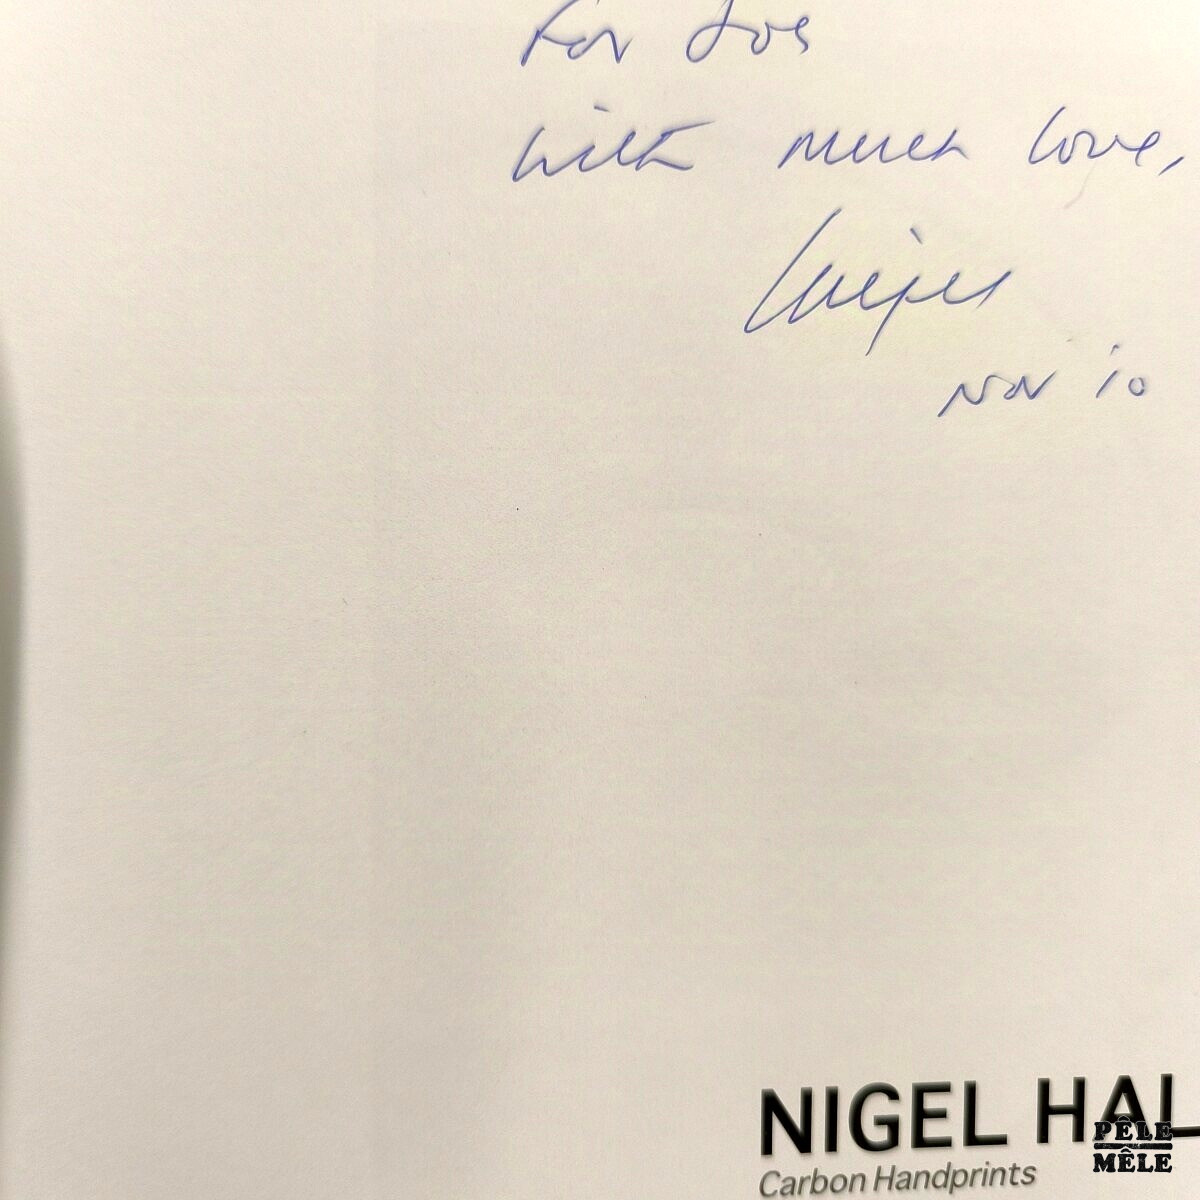 For Jos
with much love,
Nigel
Nov 10
NIGEL HAL
Carbon Handprints
PÊLE
MÊLE